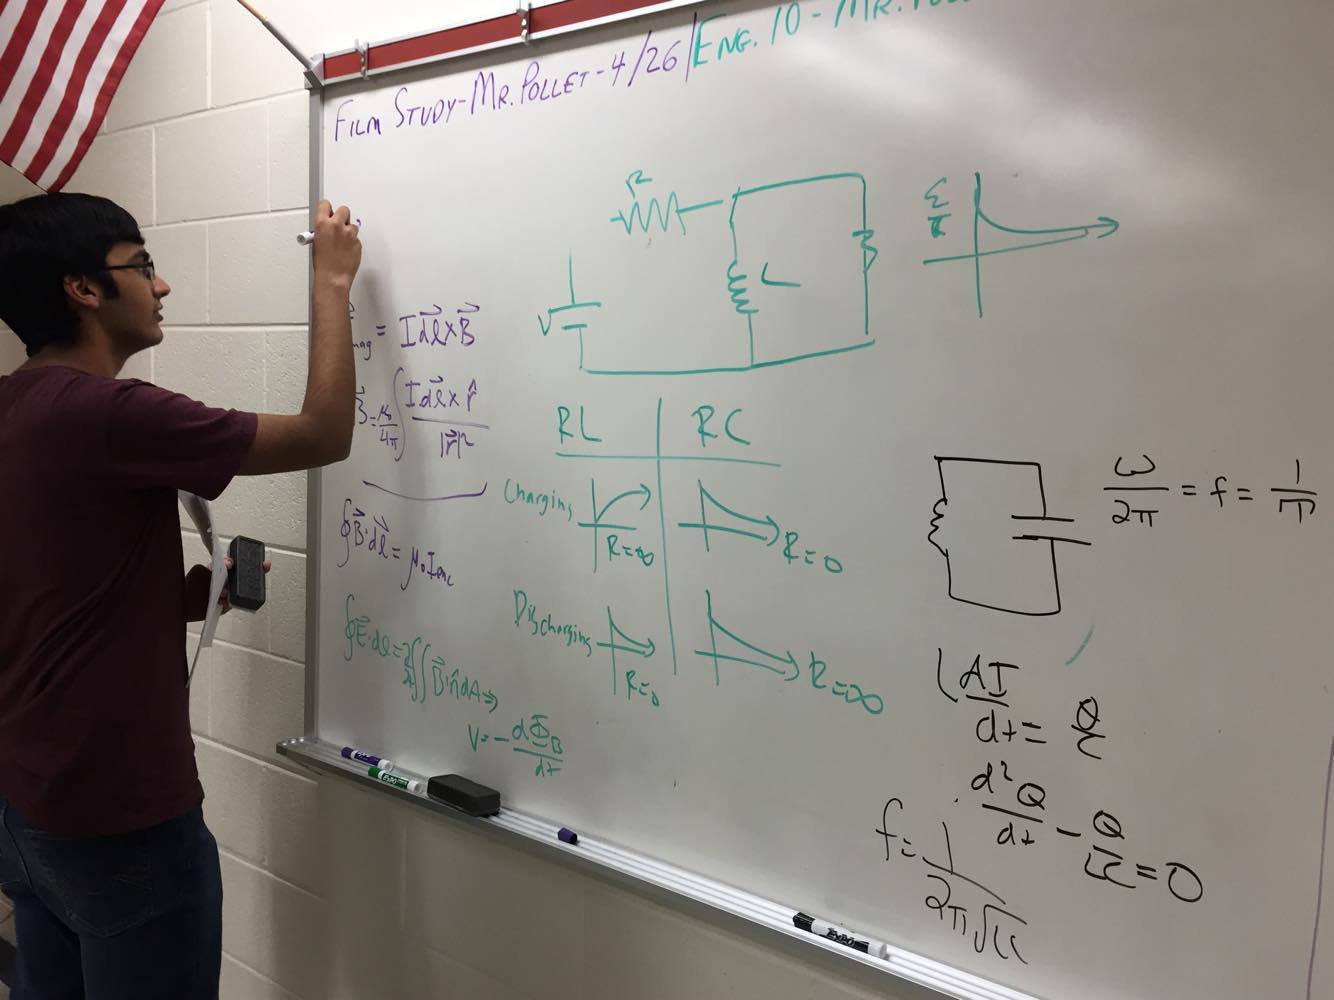 FILM STUDY-MR. POLLET-4/26/ENG. 10-MR.
R
V
L
ε/R
mag = I dl⃗ x B⃗
B⃗ = μ₀/4π ∫ I dl⃗ x r̂ / |r⃗|²
∮ B⃗·dl⃗ = μ₀ Ienc
∮ E⃗·dl = ∂/∂t ∬ B⃗·n̂ dA ⇒
V = - dΦB/dt
RL RC
Charging R=∞ R=0
Discharging R=0 R=∞
ω/2π = f = 1/T
L dI/dt = Q/C
d²Q/dt - Q/LC = 0
f = 1/2π√LC
EXPO